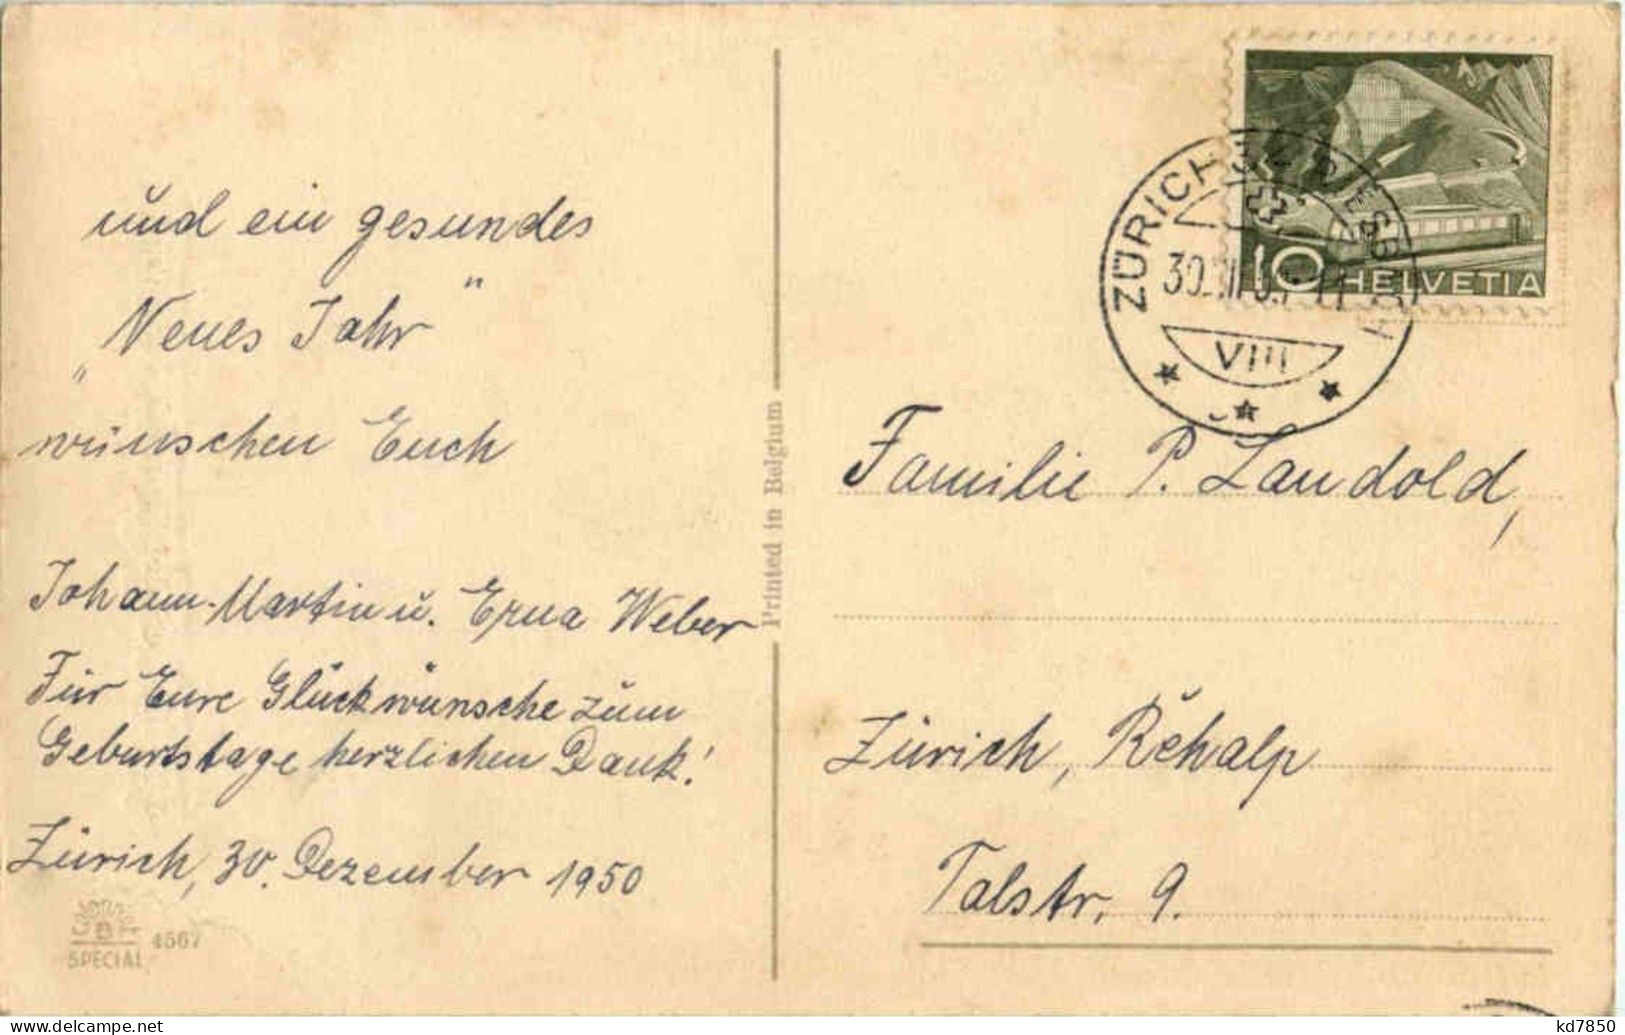 und ein gesundes
"Neues Jahr"
wünschen Euch
Johann-Martin u. Erna Weber
Für Eure Glückwünsche zum
Geburtstage herzlichen Dank!
Zürich, 30. Dezember 1950
B
SPECIAL 4567
Printed in Belgium
10 HELVETIA
ZÜRICH
VIII
Familie P. Landold,
Zürich, Rehalp
Talstr. 9.
kd7850